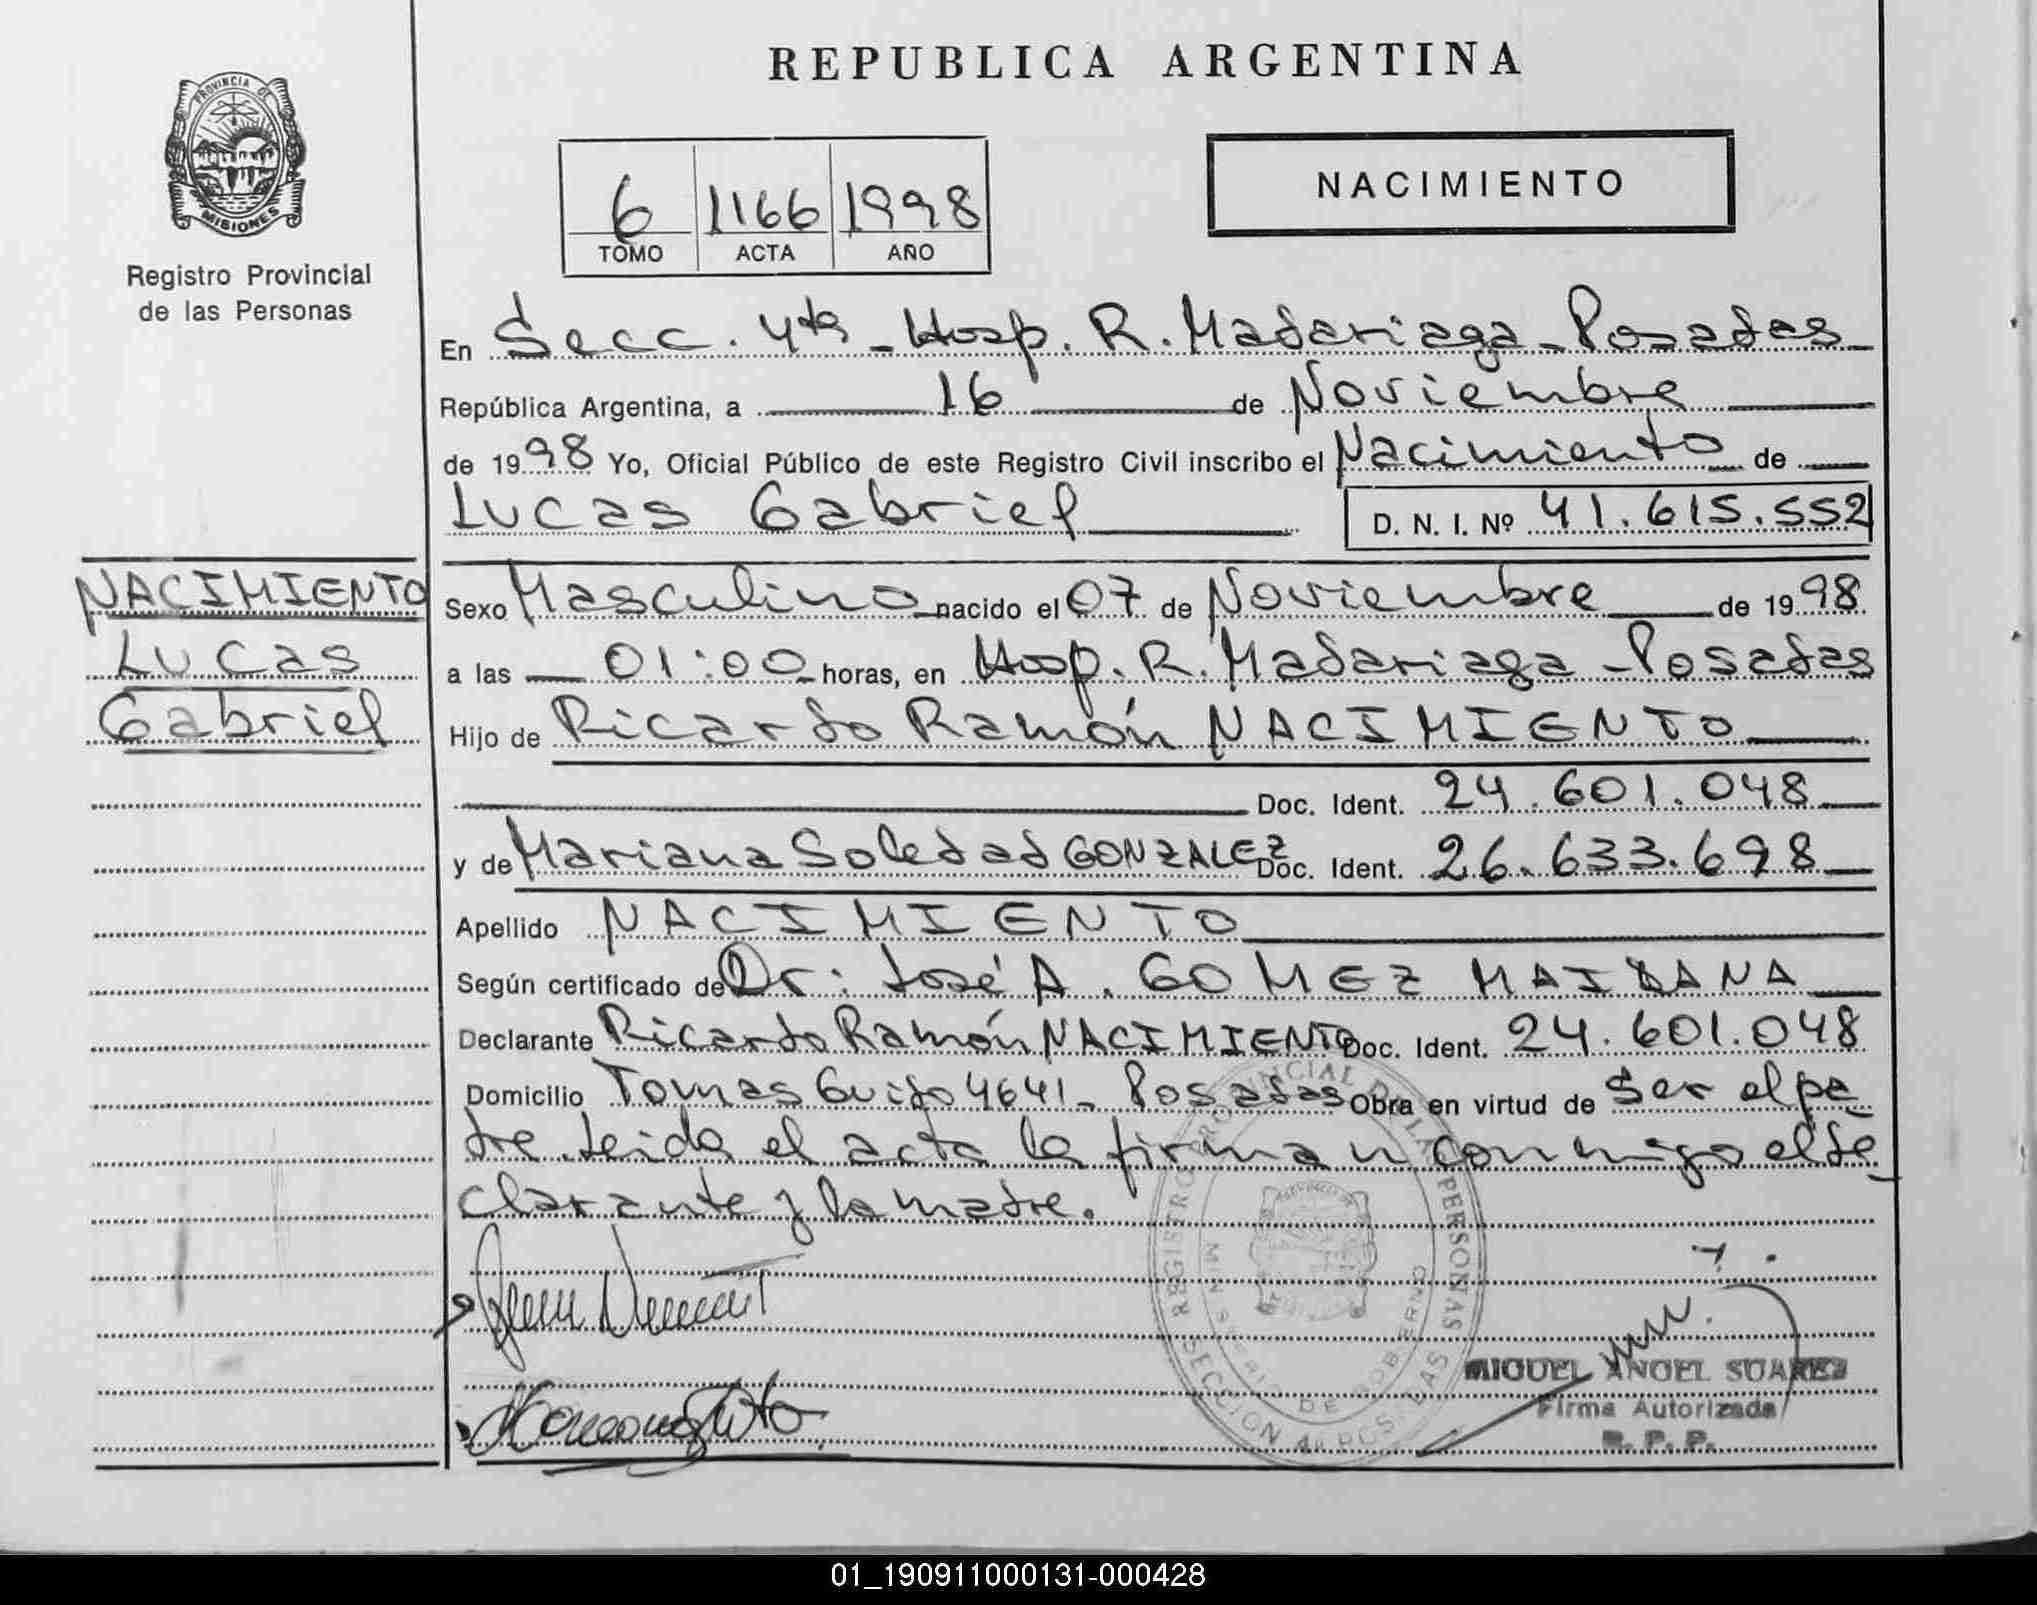 REPUBLICA ARGENTINA
PROVINCIA DE
MISIONES
Registro Provincial
de las Personas
6 1166 1998
TOMO ACTA AÑO
NACIMIENTO
En Secc. 4ta - Hosp. R. Madariaga - Posadas
República Argentina, a 16 de Noviembre
de 1998 Yo, Oficial Público de este Registro Civil inscribo el Nacimiento de
Lucas Gabriel D. N. I. Nº 41.615.552
NACIMIENTO
Lucas
Gabriel
Sexo Masculino nacido el 07 de Noviembre de 1998
a las 01:00 horas, en Hosp. R. Madariaga - Posadas
Hijo de Ricardo Ramón NACIMIENTO
Doc. Ident. 24.601.048
y de Mariana Soledad GONZALEZ Doc. Ident. 26.633.698
Apellido NACIMIENTO
Según certificado de Dr. José A. GOMEZ MAIDANA
Declarante Ricardo Ramón NACIMIENTO Doc. Ident. 24.601.048
Domicilio Tomas Guido 4641 - Posadas Obra en virtud de ser el pa-
dre. Leida el acta la firman conmigo el de-
clarante y la madre.
REGISTRO PROVINCIAL DE LAS PERSONAS
MINISTERIO DE GOBIERNO
SECCION 4ta POSADAS
MIGUEL ANGEL SUAREZ
Firma Autorizada
R. P. P.
01_190911000131-000428